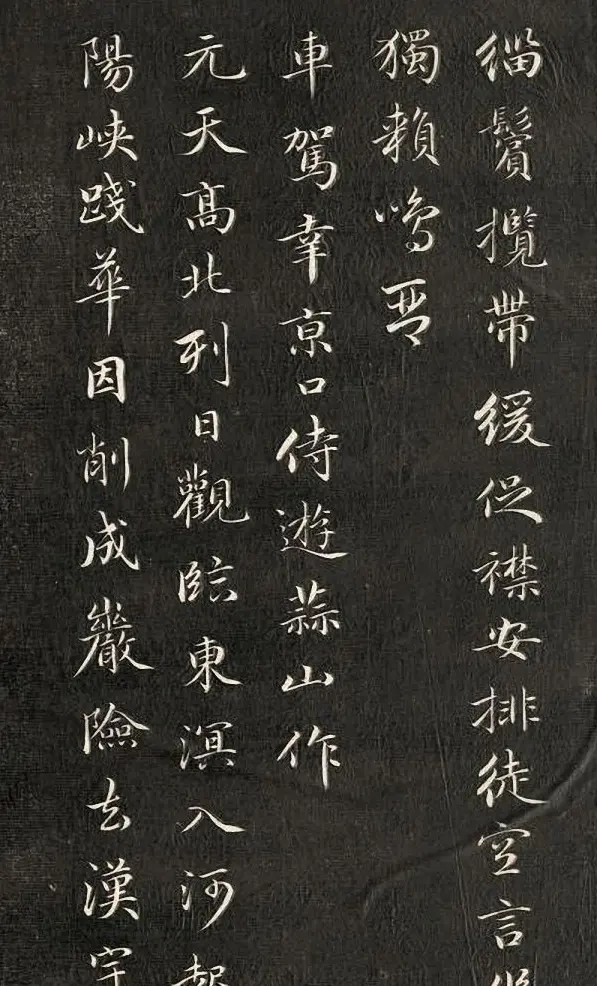 緇鬢攬帶緩促襟安排徒空言
獨賴鳴琴
車駕幸京口侍遊蒜山作
元天高北列日觀臨東溟入河起
陽峽踐華因削成巖險去漢宇